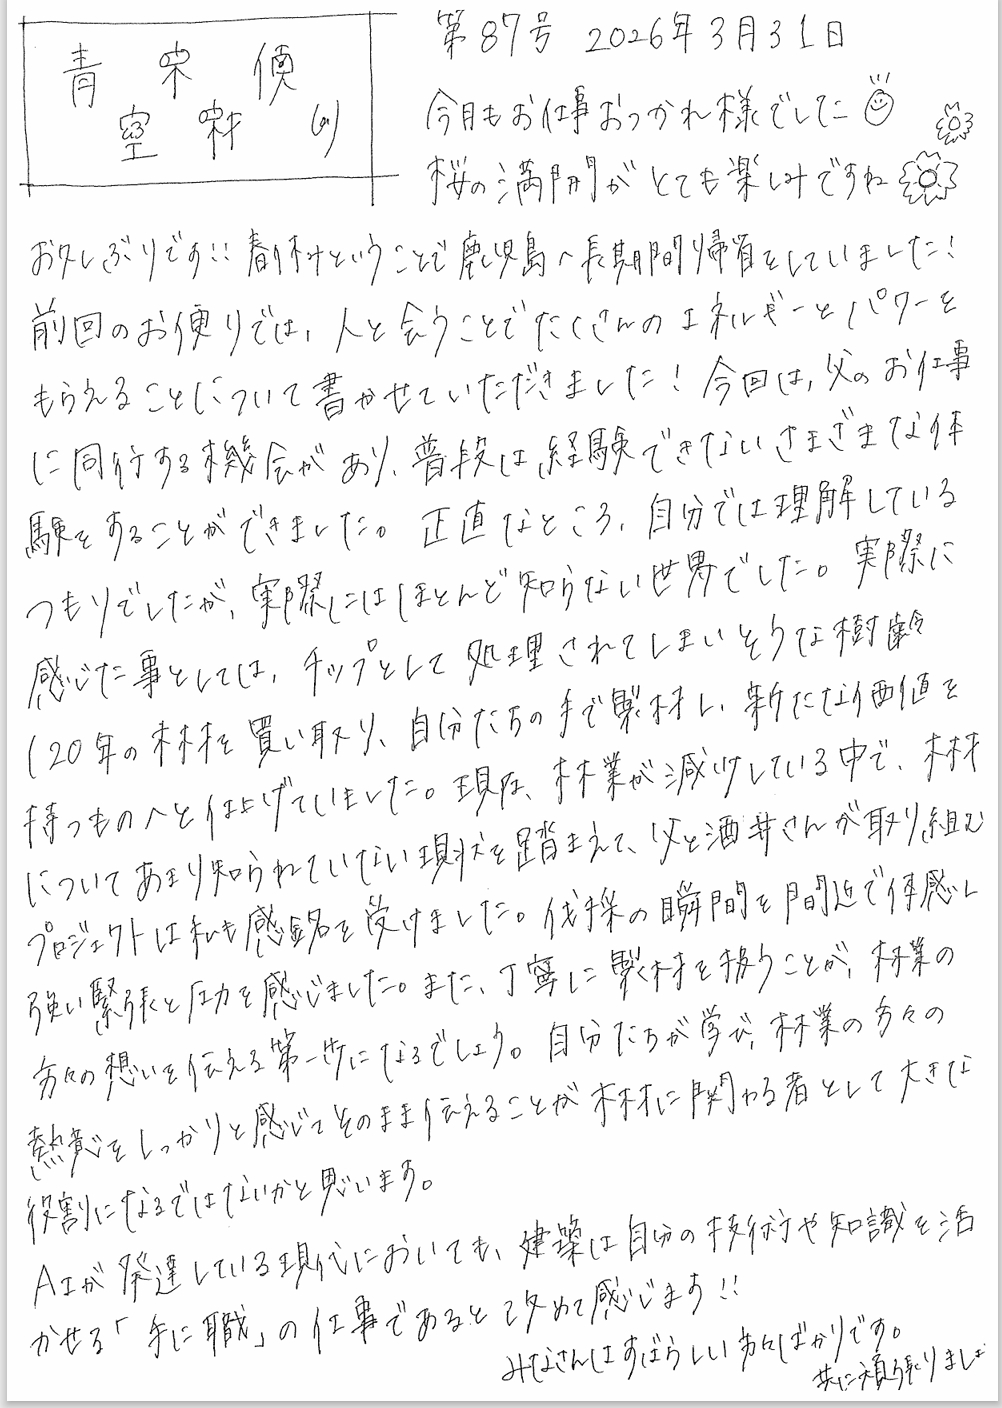 青空 栞 便り
第87号 2026年3月31日
今月もお仕事おつかれ様でした
桜の満開がとても楽しみですね
お久しぶりです!! 春休みということで鹿児島へ長期間帰省をしていました!
前回のお便りでは、人と会うことでたくさんのエネルギーとパワーを
もらえることについて書かせていただきました! 今回は、父のお仕事
に同行する機会があり、普段は経験できないさまざまな体
験をすることができました。正直なところ、自分では理解している
つもりでしたが、実際にはほとんど知らない世界でした。実際に
感じた事としては、チップとして処理されてしまいそうな樹齢
120年の木材を買い取り、自分たちの手で製材し、新たな価値を
持つものへと仕上げていました。現在、林業が減少している中で、木材
についてあまり知られていない現状を踏まえて、父と酒井さんが取り組む
プロジェクトは私も感銘を受けました。伐採の瞬間を間近で体感し
強い緊張と圧力を感じました。また、丁寧に製材を扱うことが、林業の
方々の想いを伝える第一歩になるでしょう。自分たちが学び、林業の方々の
熱意をしっかりと感じてそのまま伝えることが木材に関わる者として大きな
役割になるではないかと思います。
AIが発達している現代においても、建築は自分の技術や知識を活
かせる「手に職」の仕事であると改めて感じます!!
みなさんはすばらしい方々ばかりです。
共に頑張りましょ